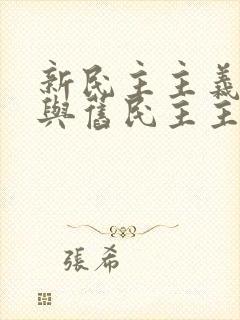 新民主主義
與舊民主主
張希